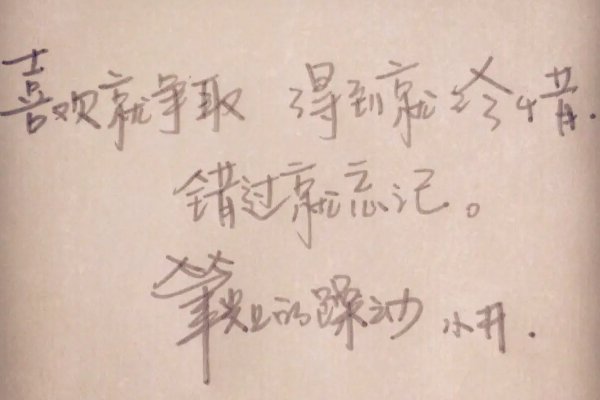 喜欢就争取 得到就珍惜.
错过就忘记。
笔尖上的躁动 小开.